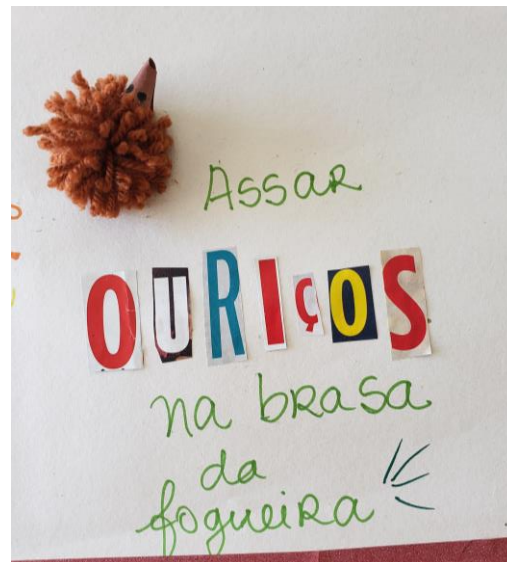 Assar
OURIÇOS
na brasa
da
fogueira